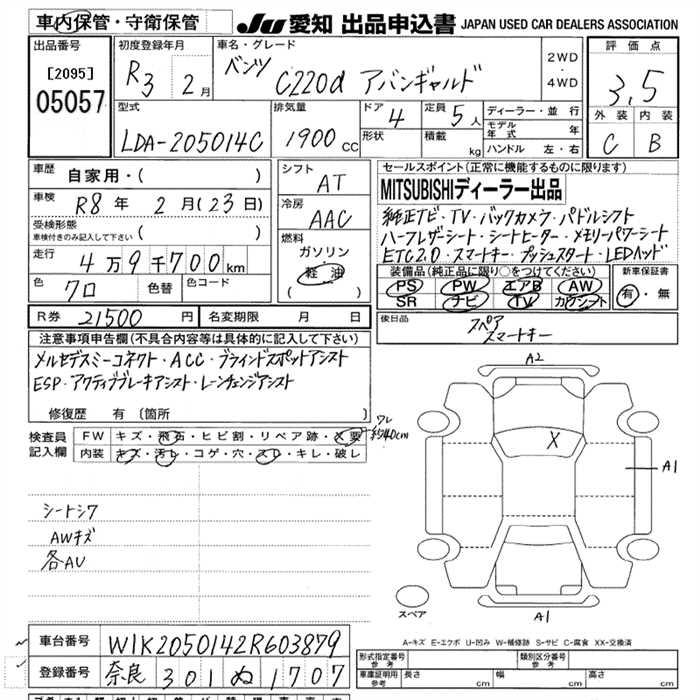 車内保管・守衛保管
JU 愛知 出品申込書 JAPAN USED CAR DEALERS ASSOCIATION
出品番号
[2095]
05057
初度登録年月
R3 2月
車名・グレード
ベンツ C220d アバンギャルド
2WD
・
4WD
評価点
3.5
外装 内装
C B
型式
LDA-205014C
排気量
1900 CC
ドア
4
形状
定員
5人
積載
kg
ディーラー・並行
モデル年式 年
ハンドル 左・右
車歴
自家用・( )
車検
R8年 2月(23日)
受検形態
車検付きのみ記入して下さい ( )
走行
4万9千700km
色
クロ
色替
色コード
シフト
AT
冷房
AAC
燃料
ガソリン
軽油
( )
セールスポイント(正常に機能するものに限ります)
MITSUBISHIディーラー出品
純正ナビ・TV・バックカメラ・パドルシフト
ハーフレザーシート・シートヒーター・メモリーパワーシート
ETC2.0・スマートキー・プッシュスタート・LEDヘッド
装備品(純正品に限り○をつけてください)
PS PW エアB AW
SR ナビ TV カワシート
新車保証書
有・無
R券 21500円
名変期限 月 日
後日品
スペア
スマートキー
注意事項申告欄(不具合内容等は具体的に記入して下さい)
メルセデスミーコネクト・ACC・ブラインドスポットアシスト
ESP・アクティブブレーキアシスト・レーンチェンジアシスト
修復歴 有 〔箇所
検査員
記入欄
FW キズ・飛石・ヒビ割・リペア跡・X要
ワレ
約540cm
内装 キズ・汚レ・コゲ・穴・スレ・キレ・破レ
シートシワ
AWキズ
各AU
A2
X
A1
スペア
A1
A-キズ E-エクボ U-凹み W-補修跡 S-サビ C-腐食 XX-交換済
車台番号 W1K2050142R603879
登録番号 奈良 301 ぬ 1707
形式指定番号
参考
類別区分番号
参考
車庫証明用
参考
長さ cm
幅 cm
高さ cm